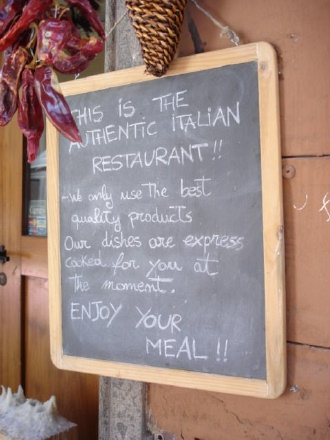 THIS IS THE
AUTHENTIC ITALIAN
RESTAURANT!!
- We only use the best
quality products
Our dishes are express
cooked for you at
the moment.
ENJOY YOUR
MEAL!!